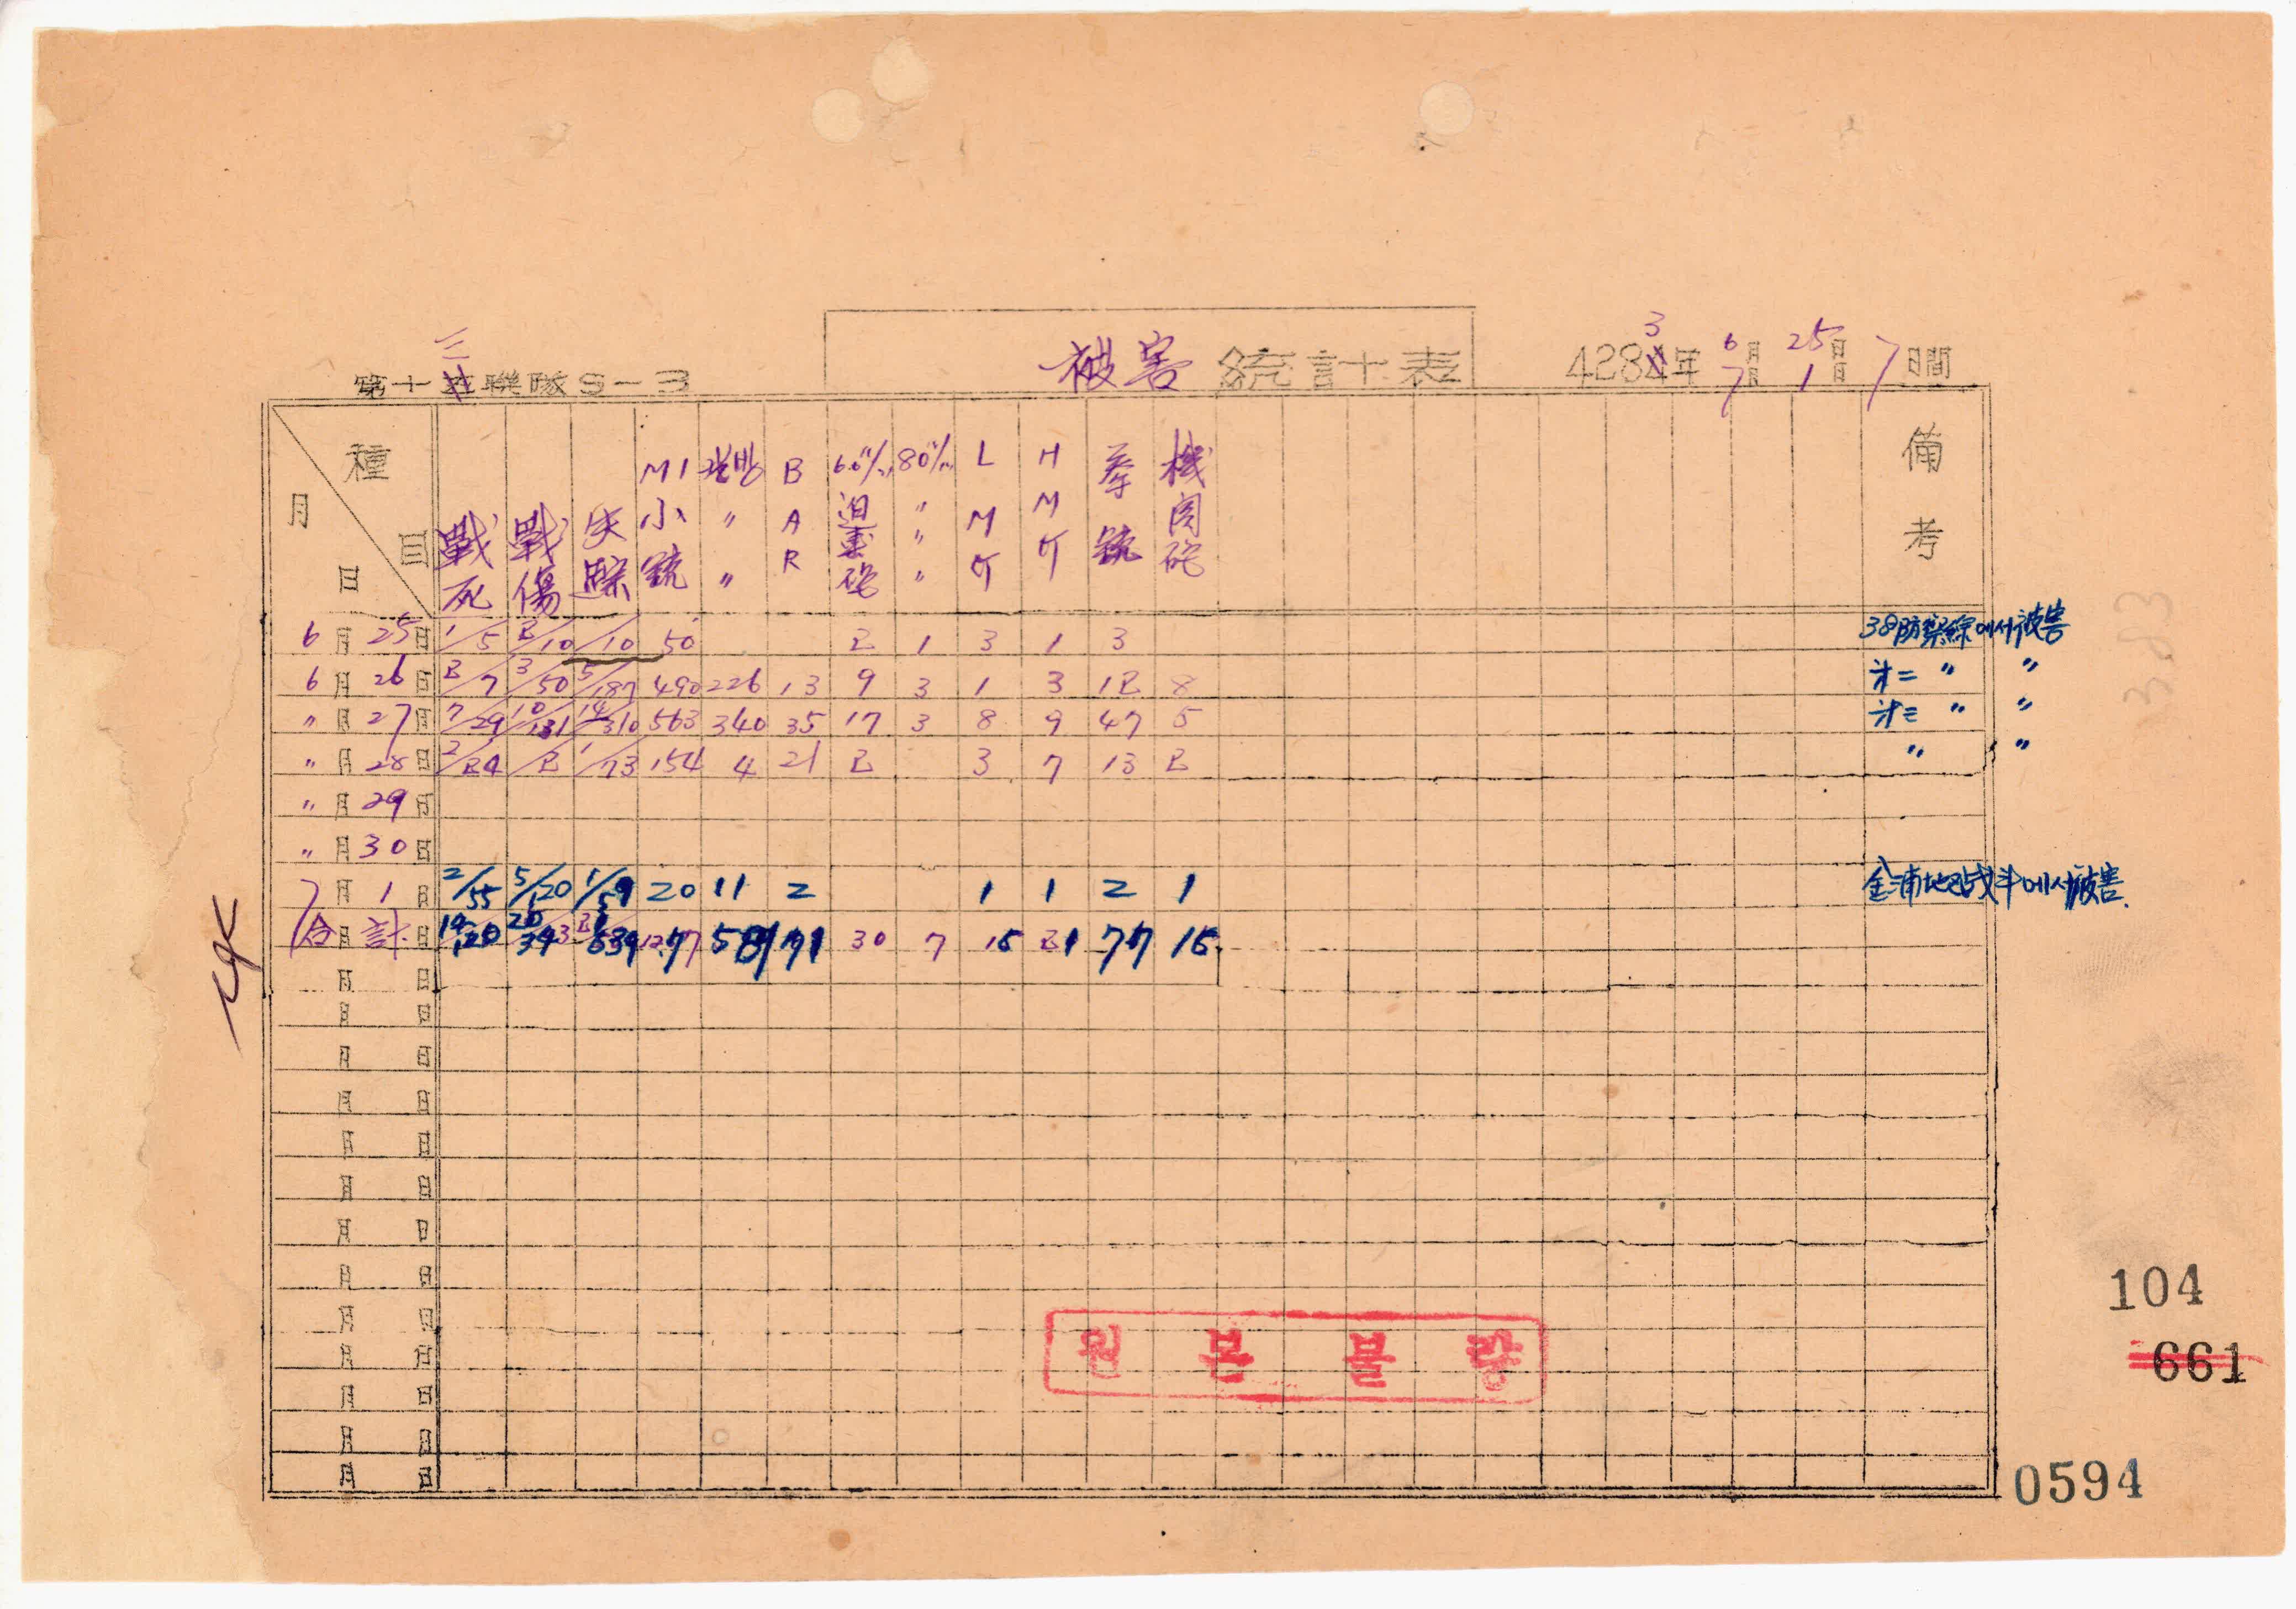 第十三聯隊S-3
被害統計表
4283年 6月25日 7月1日 7日間
種目 月日 戰死 戰傷 失踪 M1小銃 칼빙〃〃 BAR 60㎜迫擊砲 80㎜〃〃〃 LMG HMG 拳銃 機関砲 備考
6月25日 1/5 2/10 /10 50 2 1 3 1 3 38防禦線에서被害
6月26日 2/7 3/50 5/187 490 226 13 9 3 1 3 12 8 才二 〃 〃
〃月27日 7/29 10/131 14/310 563 340 35 17 3 8 9 47 5 才三 〃 〃
〃月28日 2/24 /2 1/73 154 4 21 2 3 7 13 2 〃 〃
〃月29日
〃月30日
7月1日 2/55 5/120 1/59 20 11 2 1 1 2 1 金浦地區战斗에서被害.
合計 1277 581 71 30 7 16 21 77 16
月 日
月 日
月 日
月 日
月 日
月 日
月 日
月 日
月 日
月 日
月 日
月 日
月 日
원본불량
383
104
661
0594